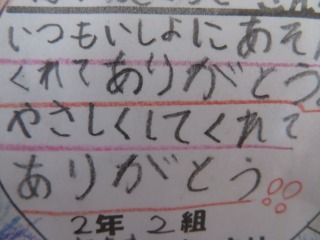 いつもいしょにあそん
くれてありがとう。
やさしくしてくれて
ありがとう。
2年2組